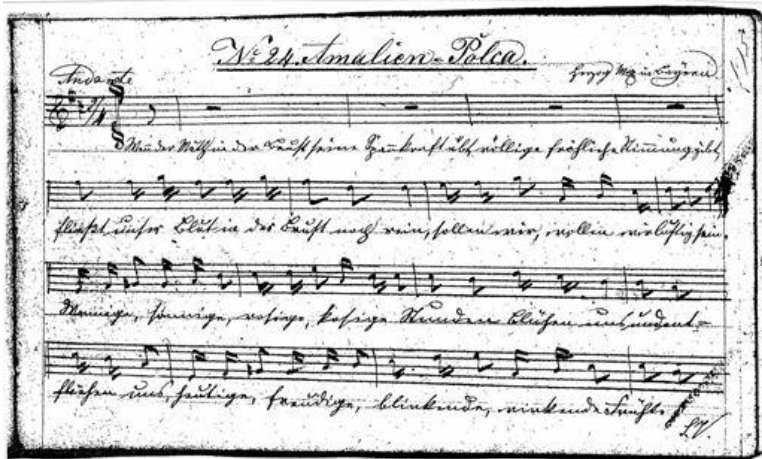 No 24. Amalien-Polca.
Andante Herzog Max in Bayern.
Wenn der Muth in der Brust seine Spannkraft übt, völlige fröhliche Stimmung gibt,
fließt unser Blut in der Brust noch rein, sollen wir, wollen wir lustig sein.
sonnige, rosige, kosige Stunden blühen uns und ent=
fliehen uns, heutige, freudige, blinkende, winkende